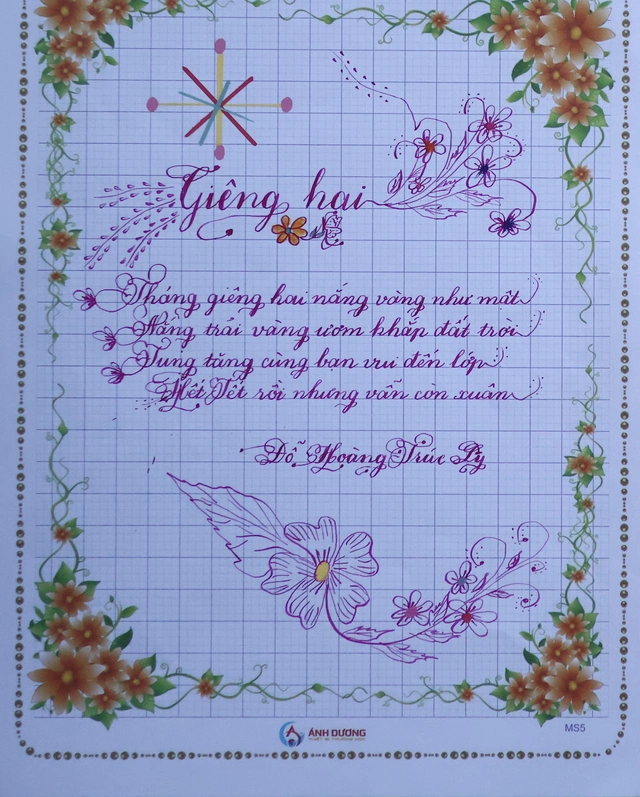 Giêng hai
Tháng giêng hai nắng vàng như mật
Nắng trải vàng ươm khắp đất trời
Tung tăng cùng bạn vui đến lớp
Hết Tết rồi nhưng vẫn còn xuân
Đỗ Hoàng Trúc Ly
ÁNH DƯƠNG
MS5